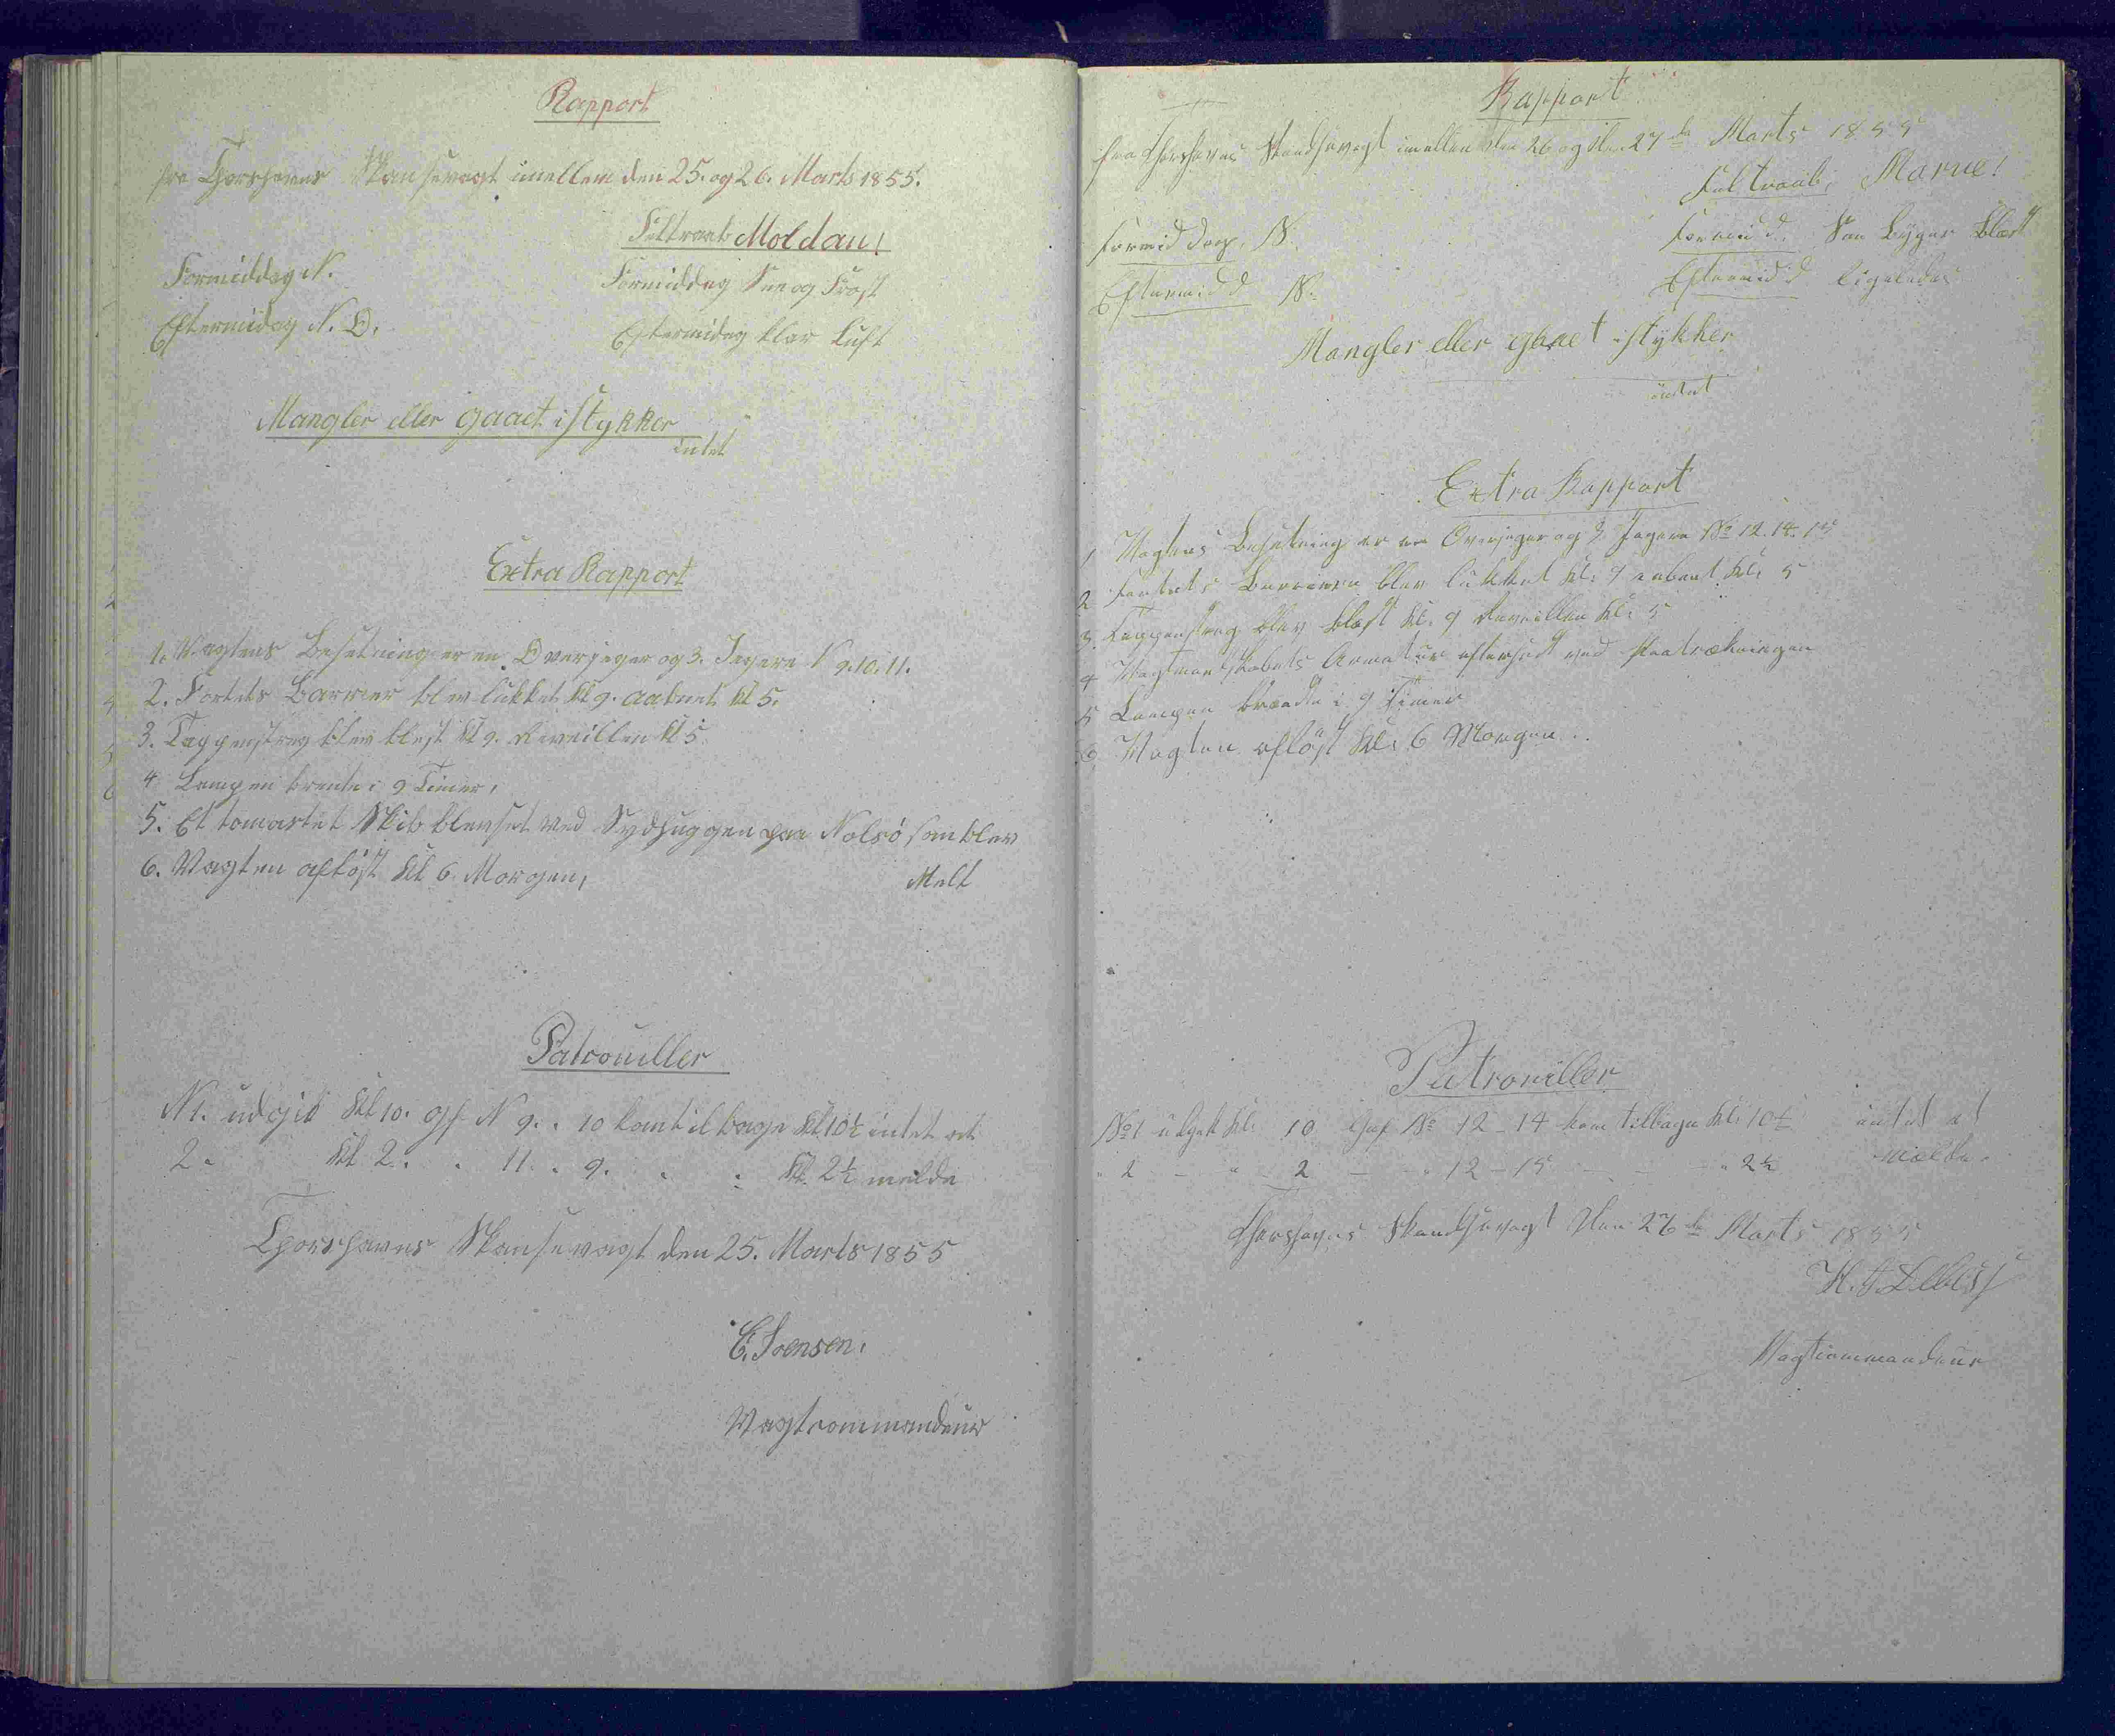 Rapport
fra Thorshavns Skansevagt imellem den 25. og 26. Marts 1855.
Feltraab Moldau!
Formiddag N. Formiddag Sne og Frost
Eftermidag N. O. Eftermidag klar Luft
Mangler eller gaaet istykker
intet
Extra Rapport
1. Vagtens Besetning er en Overjeger og 3. Jegere N 9. 10. 11.
2. Fortets Barrier blev lukket Kl 9. aabnet Kl 5.
3. Tappenstreg blev blest Kl 9. Reveillen Kl 5
4 Lampen brente i 9 Timer,
5. Et tomastet Skib blev set ved Sydhuggen paa Nolsö som blev
Melt
6. Vagten aflöst Kl 6 Morgen,
Patrouiller
N 1. udgik Kl 10. gf N 9. . 10 kom tilbage Kl 10½ intet at
2 " Kl 2. . . 11. . 9. . . Kl. 2½ melde
Thorshavns Skansevagt den 25. Marts 1855
E. Joensen.
Vagtcommandeur
Rapport
fra Thorshavns Skandsevagt imellem den 26 og den 27de Marts 1855
Feltraab; Marne!
Formiddag. N. Formidd. Sne Byger Blæst
Eftermidd N. Eftermidd ligeledes
Mangler eller gaaet istykker
intet
Extra Rapport
1 Vagtens Besetning er en Overjeger og 3 Jegere No 12. 14. 15
2 Fortets Barrieren blev lukket Kl: 9 aabnet Kl: 5
3. Tappenstreg blev blæst Kl. 9 Reveillen Kl: 5
4 Vagtmandskabets Armatur efterseet ved Paatrækningen
5 Lampen brændte i 9 Timer
6 Vagten aflöst Kl: 6 Morgen.
Patrouiller
No 1 udgik Kl: 10 Gef No 12 - 14 kom tilbage Kl: 10½ intet at
" 2 - " 2 - - " 12 - 15 - - - " 2½ melde.
Thorshavns Skandsevagt den 27de Marts 1855
Vagtcommandeur